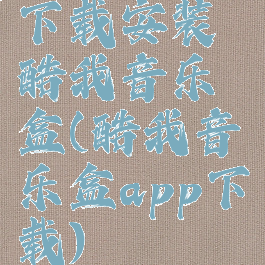 下载安装
酷我音乐
盒(酷我音
乐盒app下
载)